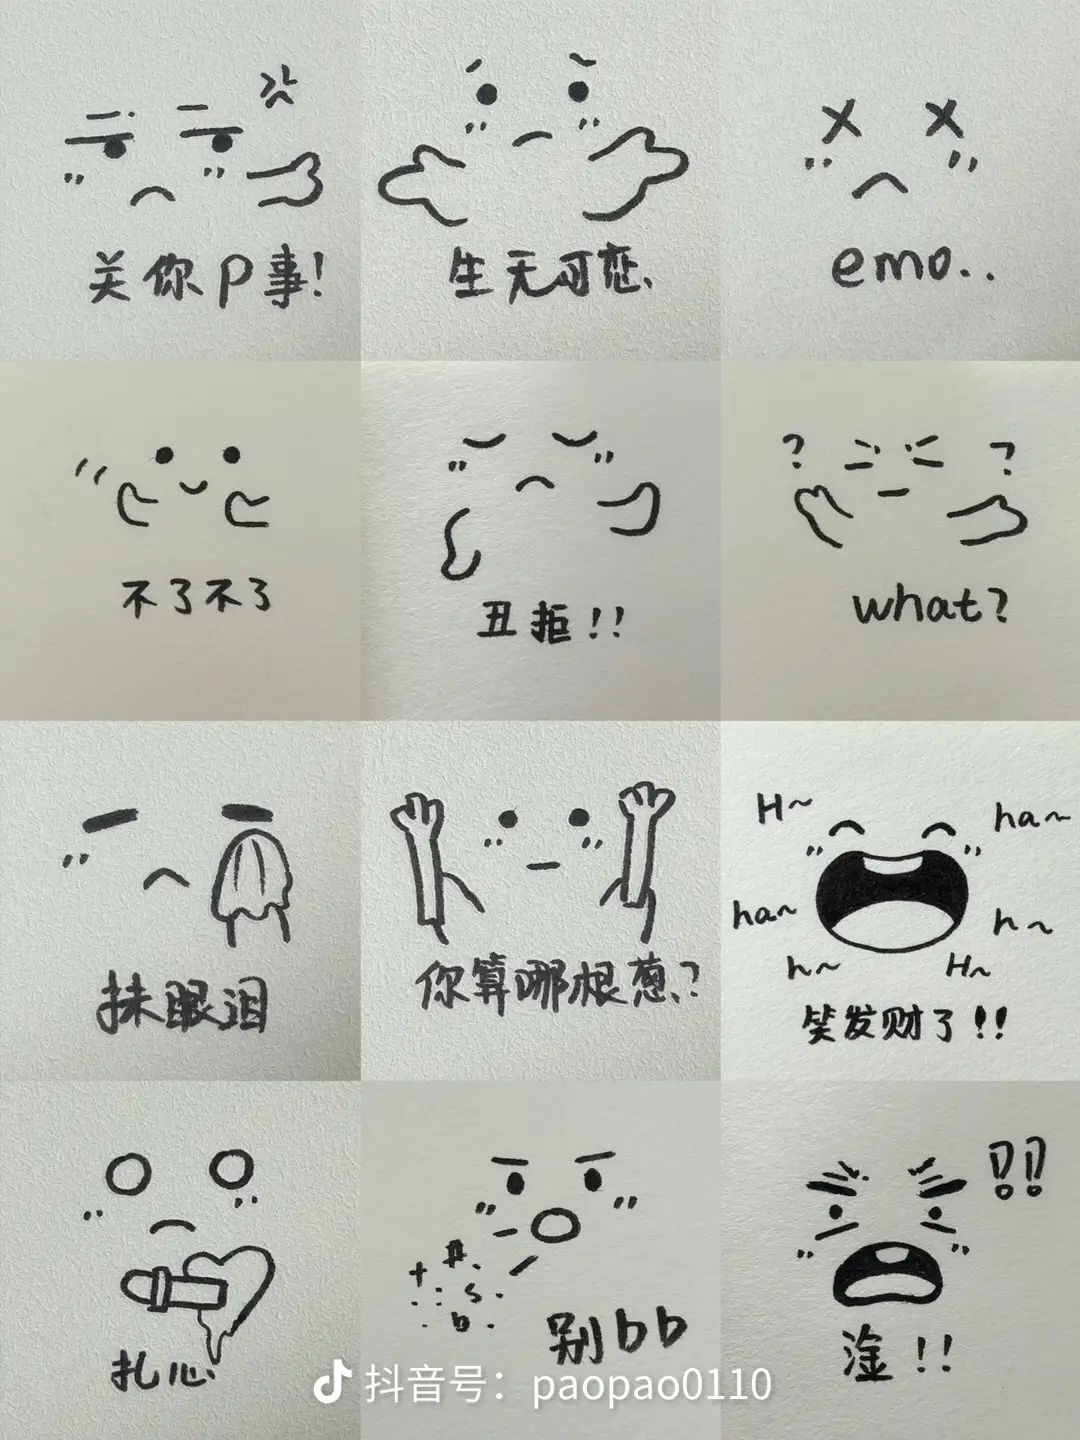 关你P事!
生无可恋、
emo..
不了不了
丑拒!!
? ?
what?
抹眼泪
你算哪根葱?
H~
ha~
ha~
h~
h~
H~
笑发财了!!
扎心
# s b
别bb
!!
淦!!
抖音号: paopao0110